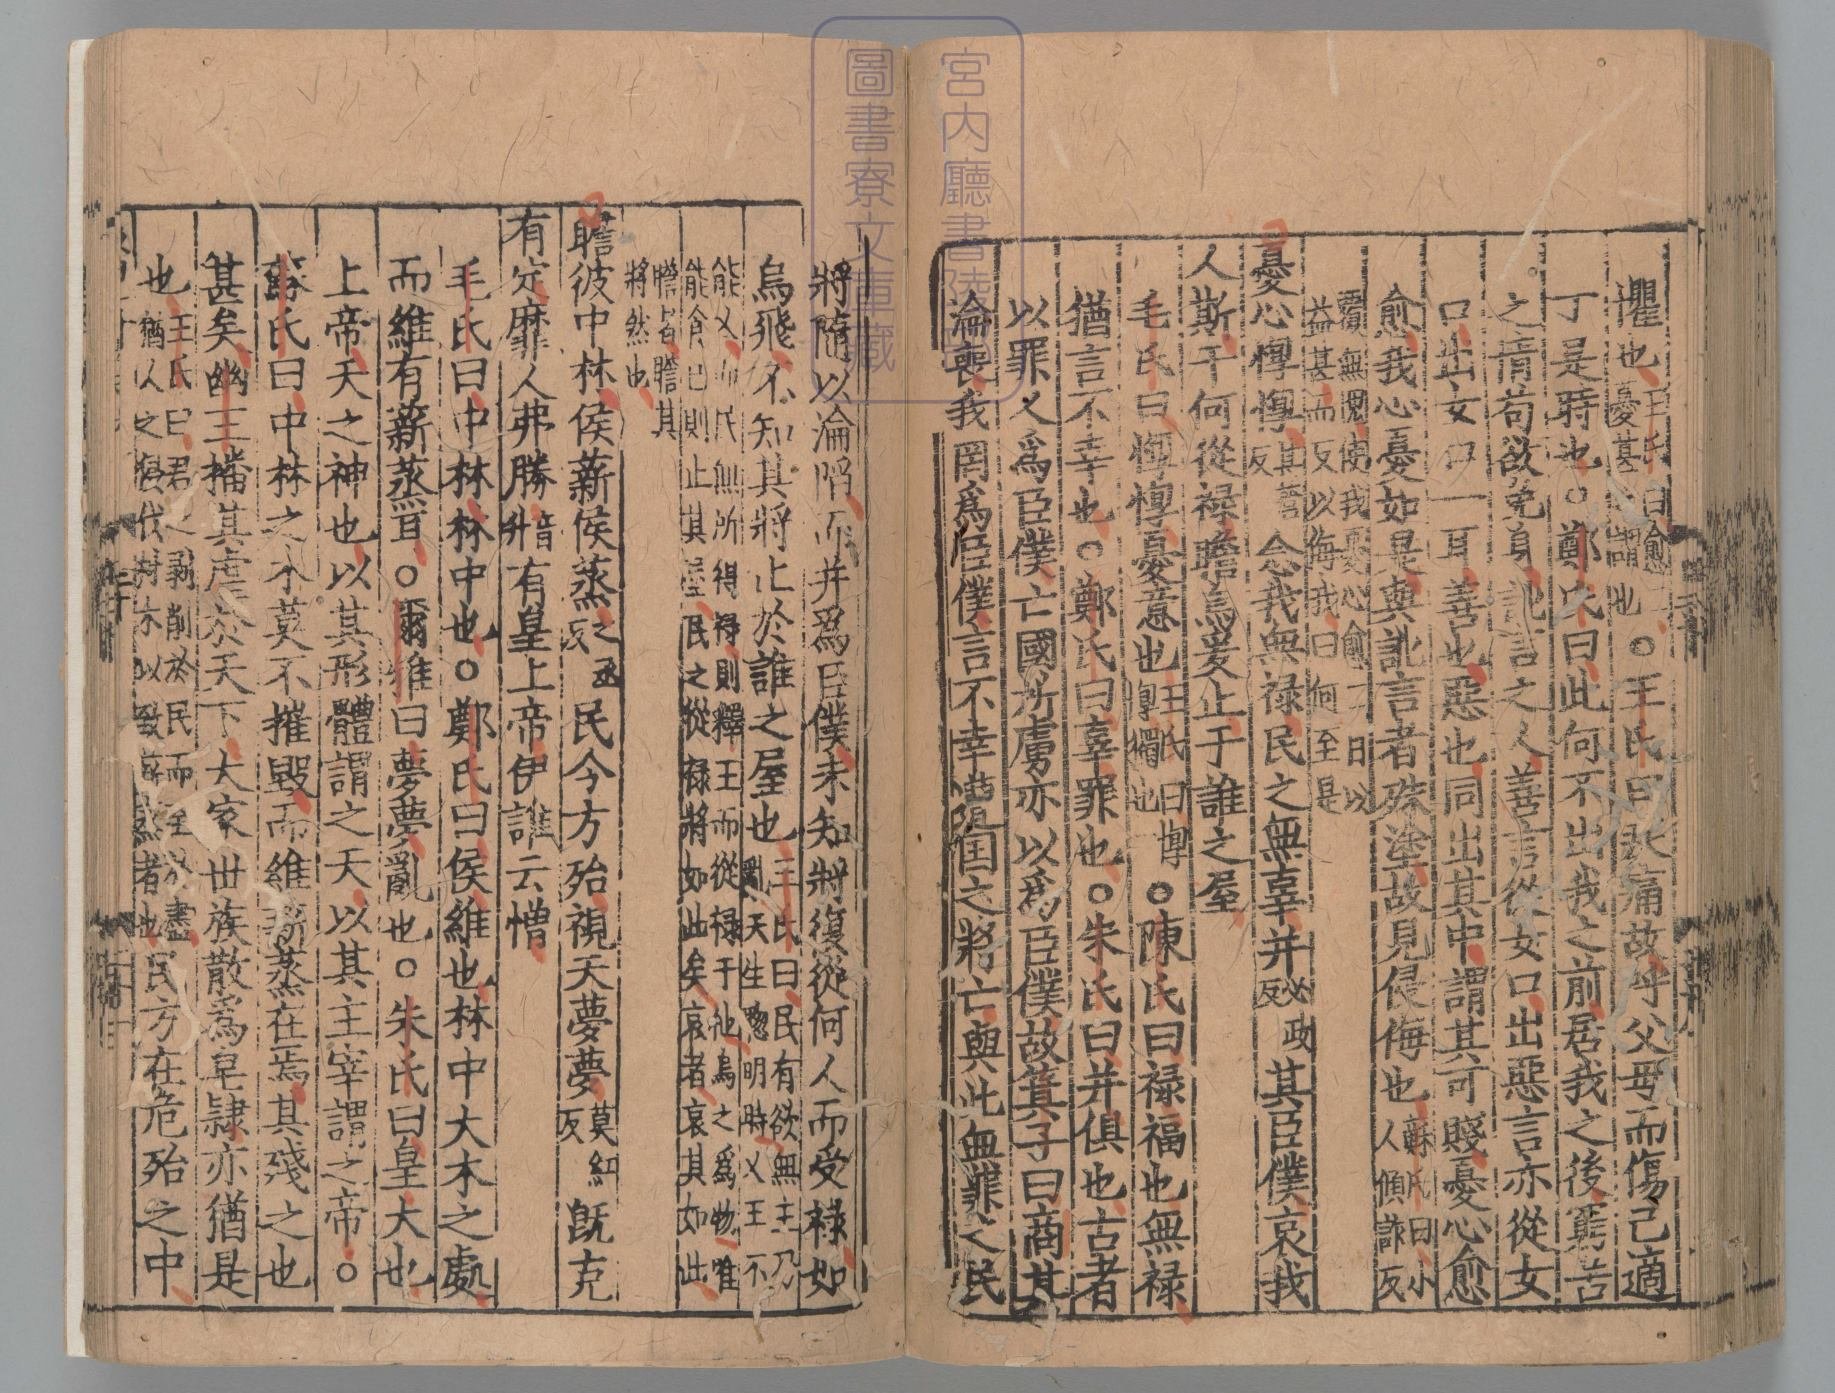 懼也王氏曰愈愈憂甚之謂也○王氏曰疾痛故呼父母而傷己適
丁是時也○鄭氏曰此何不出我之前居我之後窮苦
之情苟欲免身訛言之人善言從女口出惡言亦從女
口出女口一耳善也惡也同出其中謂其可賤憂心愈
愈我心憂如是與訛言者殊塗故見侵侮也蘇氏曰小人傾詐反
覆無愧使我憂心愈愈日以益甚而反以侮我曰何至是
憂心惸惸其營反念我無祿民之無辜并必政反其臣僕哀我
人斯于何從祿瞻烏爰止于誰之屋
毛氏曰惸惸憂意也王氏曰惸惸獨也○陳氏曰祿福也無祿
猶言不幸也○鄭氏曰辜罪也○朱氏曰并俱也古者
以罪人爲臣僕亡國所虜亦以爲臣僕故箕子曰商其
淪喪我罔爲臣僕言不幸遭國之將亡與此無罪之民
將隨以淪陷而并爲臣僕未知將復從何人而受祿如
烏飛不知其將止於誰之屋也王氏曰民有欲無主乃亂天生聰明時乂王不
能乂而民無所得祿則釋王而從祿于他烏之爲物唯能食已則止其屋民之從祿將如此矣哀者哀其如此
瞻者瞻其將然也
瞻彼中林侯薪侯蒸之丞反民今方殆視天夢夢莫紅反旣克
有定靡人弗勝音升有皇上帝伊誰云憎
毛氏曰中林林中也○鄭氏曰侯維也林中大木之處
而維有薪蒸耳○爾雅曰夢夢亂也○朱氏曰皇大也
上帝天之神也以其形體謂之天以其主宰謂之帝○
蘇氏曰中林之木莫不摧毀而維薪蒸在焉其殘之也
甚矣幽王播其虐於天下大家世族散爲皁隷亦猶是
也王氏曰君之剥削於民而至於盡猶以之侵伐林木以致薪蒸者也民方在危殆之中
宮内廳書陵部
圖書寮文庫藏